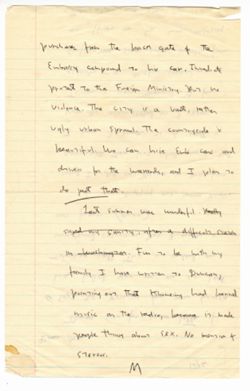 purchase from the back gate of the
Embassy compound to his car. Threats
protest to the Foreign Ministry. Yes, no
violence. The city is a vast, rather
ugly urban sprawl. The countryside is
beautiful. We can hire Emb cars and
drivers for the weekends, and I plan to
do just that.
Last summer was wonderful
my sanity, after a difficult
in Fun to be with my
family. I have written to Duncan,
pointing out that Khomeiny had banned
music on the radio, because it made
people think about sex. No mention of
stereos.
M